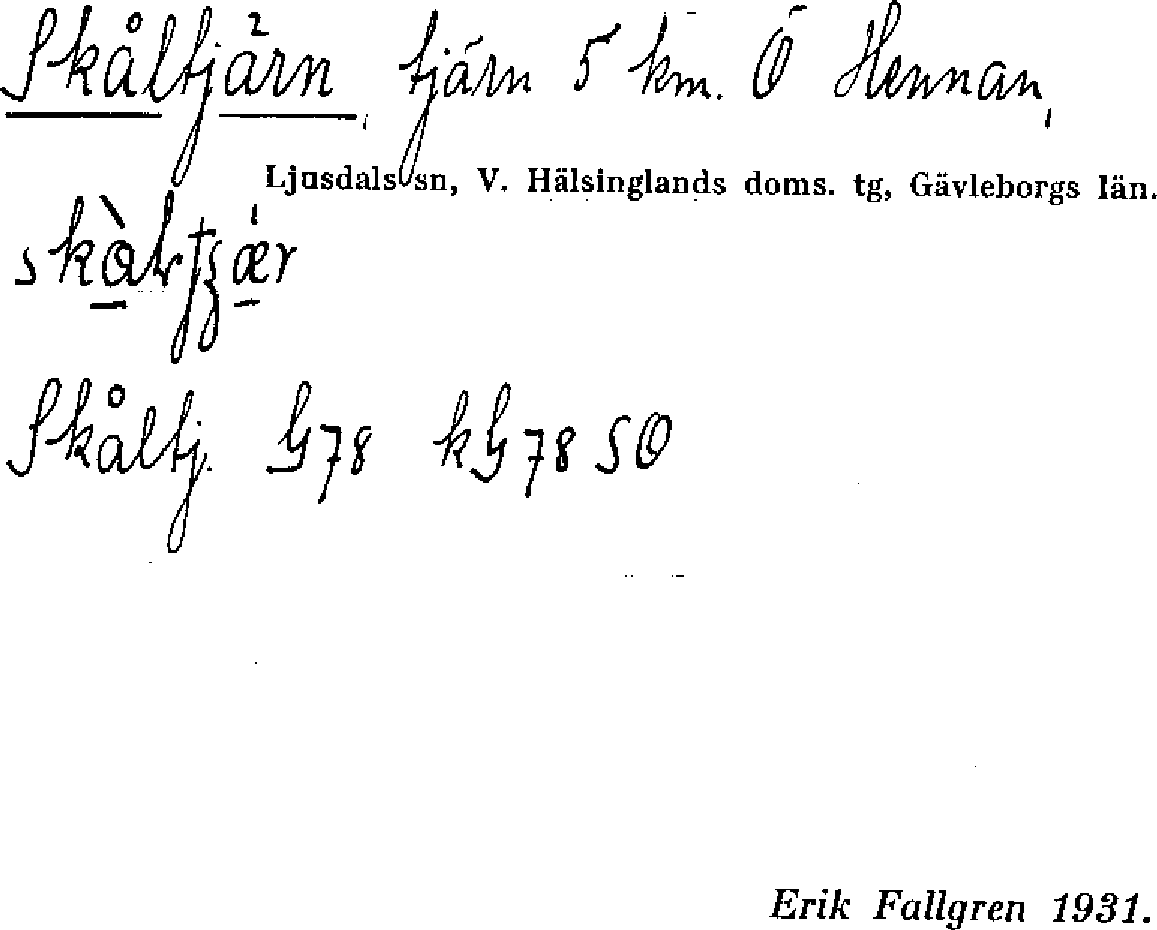 Skåltjärn, tjärn 5 km. Ö Hennan,
Ljusdals sn, V. Hälsinglands doms. tg, Gävleborgs län.
Skåltj. G78 kG78 SO
Erik Fallgren 1931.